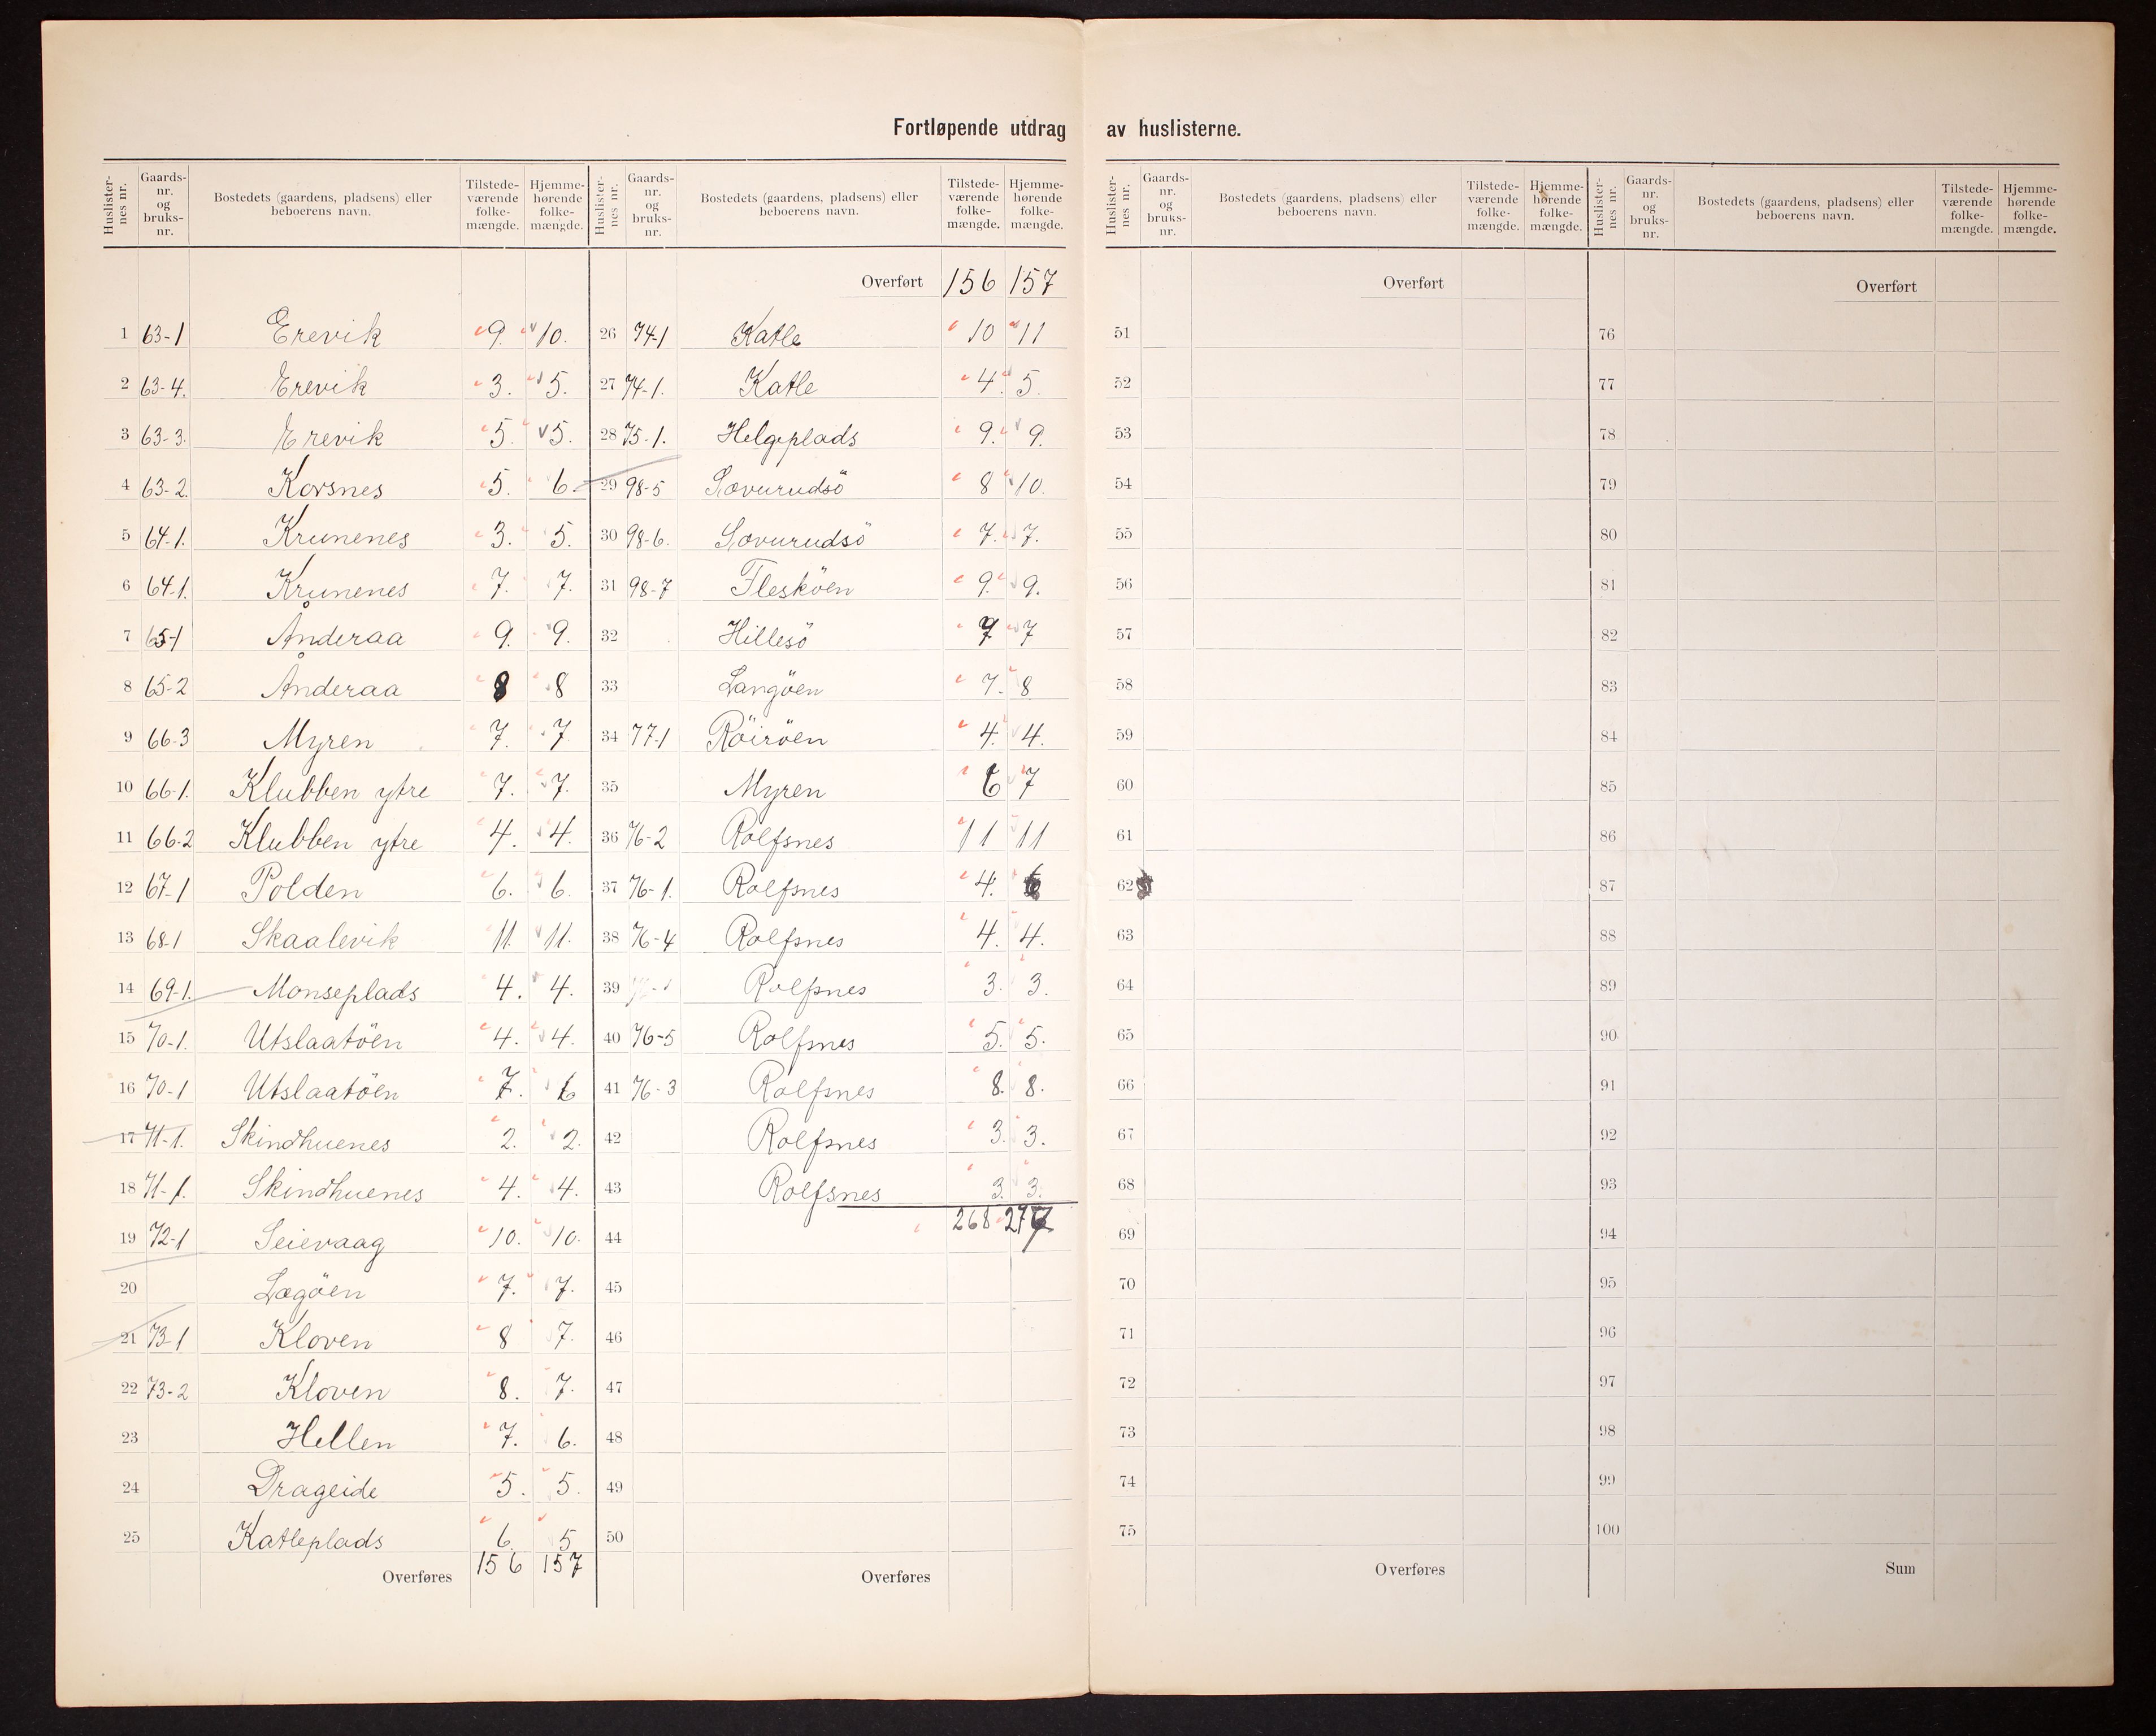 Fortløpende utdrag av huslisterne.
Huslisternes nr. Gaardsnr. og bruksnr. Bostedets (gaardens, pladsens) eller beboerens navn. Tilstedeværende folkemængde. Hjemmehørende folkemængde.
1 63-1 Erevik 9. 10.
2 63-4. Erevik 3. 5.
3 63-3. Erevik 5. 5.
4 63-2. Korsnes 5. 6.
5 64-1. Krunenes 3. 5.
6 64-1. Krunenes 7. 7.
7 65-1 Ånderaa 9. 9.
8 65-2 Ånderaa 8 8
9 66-3 Myren 7. 7
10 66-1. Klubben ytre 7. 7.
11 66-2 Klubben ytre 4. 4.
12 67-1 Polden 6. 6.
13 68-1 Skaalevik 11. 11.
14 69-1. Monseplads 4. 4.
15 70-1. Utslaatöen 4. 4.
16 70-1 Utslaatöen 7. 6
17 71-1. Skindhuenes 2. 2.
18 71-1. Skindhuenes 4. 4.
19 72-1 Seievaag 10. 10.
20 Lægöen 7. 7.
21 73-1 Kloven 8 7.
22 73-2 Kloven 8. 7.
23 Hellen 7. 6.
24 Drageide 5. 5.
25 Katleplads 6. 5
Overføres 156 157
Huslisternes nr. Gaardsnr. og bruksnr. Bostedets (gaardens, pladsens) eller beboerens navn. Tilstedeværende folkemængde. Hjemmehørende folkemængde.
Overført 156 157
26 74-1 Katle 10 11
27 74-1. Katle 4. 5.
28 75-1. Helgeplads 9. 9.
29 98-5 Sovurudsö 8 10.
30 98-6. Sovurudsö 7. 7.
31 98-7 Flesköen 9. 9.
32 Hillesö 7 7
33 Langöen 7. 8
34 77-1 Röiröen 4. 4.
35 Myren 6 7
36 76-2 Rolfsnes 11 11
37 76-1. Rolfsnes 4.
38 76-4 Rolfsnes 4. 4.
39 Rolfsnes 3. 3.
40 76-5 Rolfsnes 5. 5.
41 76-3 Rolfsnes 8. 8.
42 Rolfsnes 3. 3.
43 Rolfsnes 3. 3.
44 268 277
45
46
47
48
49
50
Overføres
Huslisternes nr. Gaardsnr. og bruksnr. Bostedets (gaardens, pladsens) eller beboerens navn. Tilstedeværende folkemængde. Hjemmehørende folkemængde.
Overført
51
52
53
54
55
56
57
58
59
60
61
62
63
64
65
66
67
68
69
70
71
72
73
74
75
Overføres
Huslisternes nr. Gaardsnr. og bruksnr. Bostedets (gaardens, pladsens) eller beboerens navn. Tilstedeværende folkemængde. Hjemmehørende folkemængde.
Overført
76
77
78
79
80
81
82
83
84
85
86
87
88
89
90
91
92
93
94
95
96
97
98
99
100
Sum